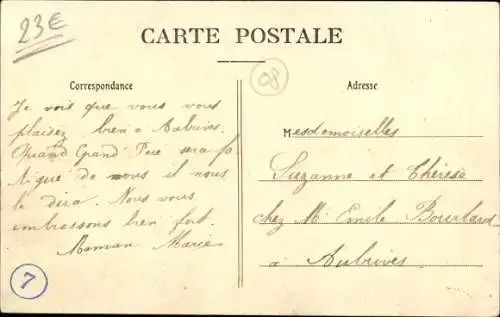 23€
CARTE POSTALE
08
Correspondance
Je vois que vous vous
plaisez bien à Aubrives.
Quand Grand Père sera fa
tigué de vous il nous
le dira. Nous vous
embrassons bien fort.
Maman Marie
7
Adresse
Mesdemoiselles
Suzanne et Thérèse
chez Mr Emile Bourlard
à Aubrives.